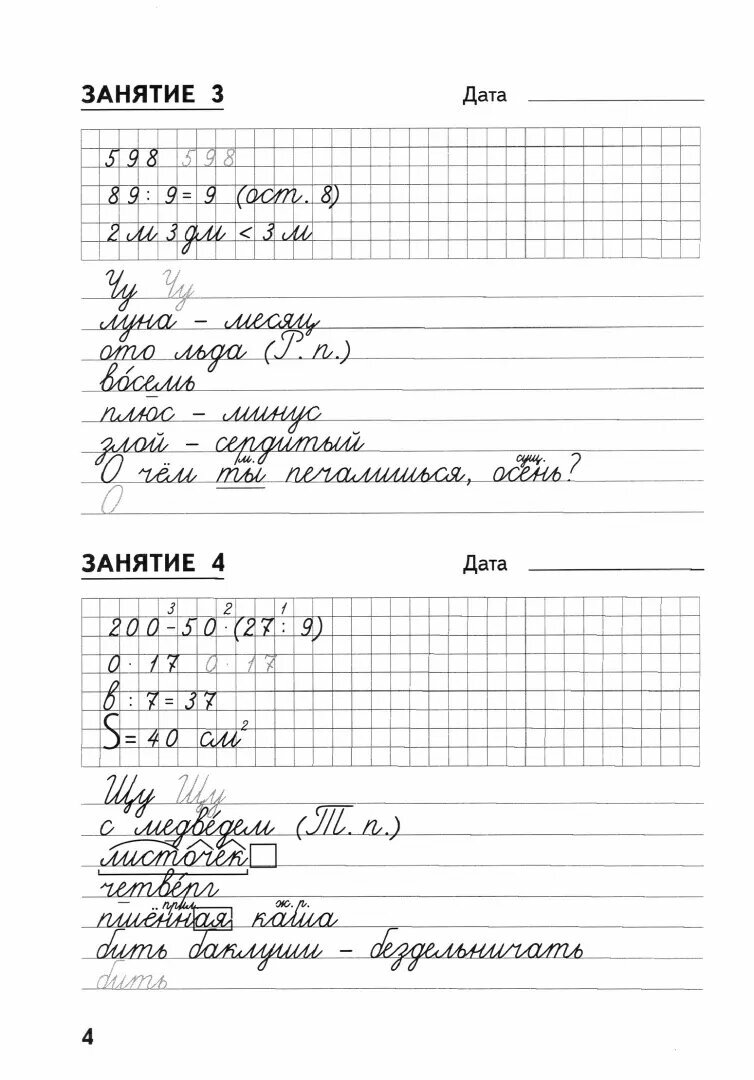 ЗАНЯТИЕ 3 Дата
598 598
89 : 9 = 9 (ост. 8)
2 м 3 дм < 3 м
Чу Чу
луна – месяц
ото льда (Р. п.)
во́семь
плюс – минус
злой – сердитый
м. сущ.
О чём ты печалишься, осень?
О
ЗАНЯТИЕ 4 Дата
3 2 1
200 – 50 · (27 : 9)
0 · 17 0 · 17
в : 7 = 37
S = 40 см²
Щу Щу
с медве́дем (Т. п.)
листочек
четве́рг
прил. ж. р.
пшённая каша
бить баклуши – бездельничать
бить
4